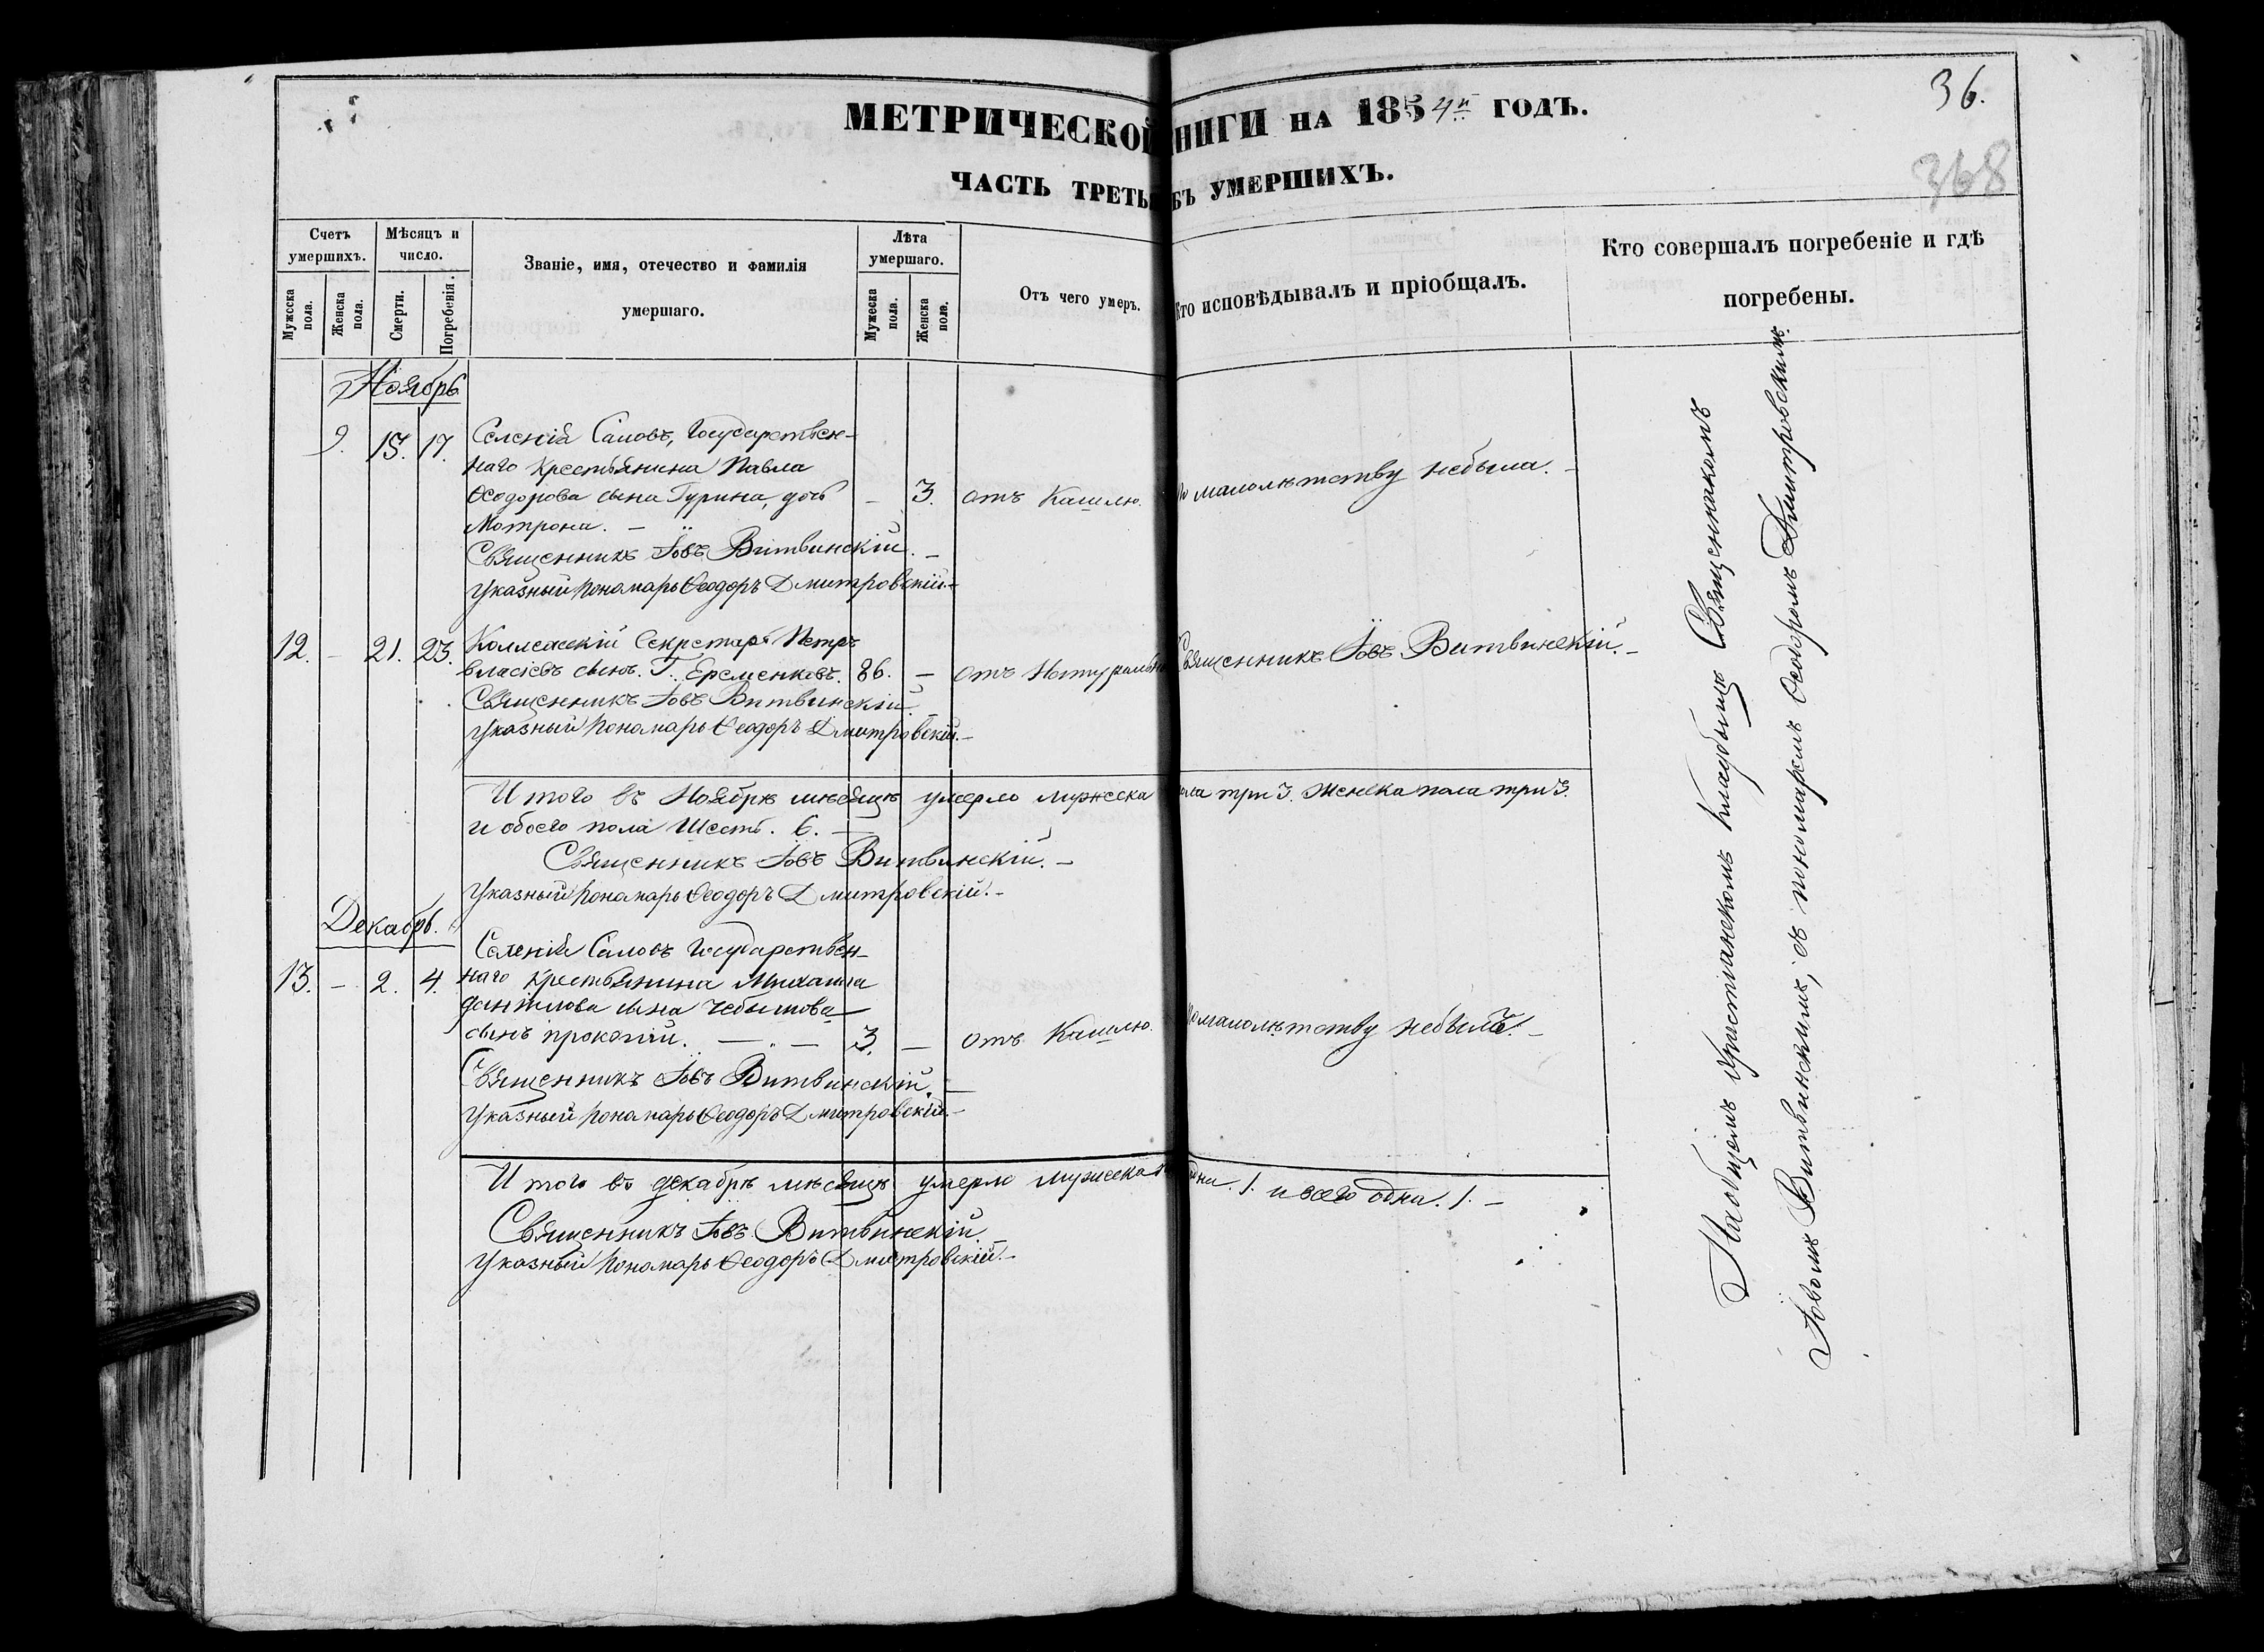 36.
368
МЕТРИЧЕСКОЙ НИГИ НА 1854й ГОДЪ.
ЧАСТЬ ТРЕТЬ БЪ УМЕРШИХЪ.
Счетъ умершихъ.
Мужеска пола.
Женска пола.
Мѣсяцъ и число.
Смерти.
Погребенія.
Званіе, имя, отечество и фамилія
умершаго.
Лѣта умершаго.
Мужеска пола.
Женска пола.
Отъ чего умеръ.
Кто исповѣдывалъ и пріобщалъ.
Кто совершалъ погребеніе и гдѣ
погребены.
Ноябрь
9. 15. 17. Селенія Саловъ, Государствен-
наго крестьянина Павла
Ѳеодорова сына Гурина, дочь — 3. отъ Кашлю. малолѣтству небыла. —
Мотрона. —
Священникъ Іовъ Витвинскій. —
Указный пономарь Ѳеодоръ Дмитровскій. —
12. — 21. 23. Коллежскій Секретарь Петръ
власіевъ сынъ. Г. Еременковъ. 86. — отъ Натуральн Священникъ Іовъ Витвинскій. —
Священникъ Іовъ Витвинскій.
Указный пономарь Ѳеодоръ Дмитровскій. —
Итого въ Ноябрѣ мѣсяцѣ умерло мужеска ола три 3. женска пола три 3.
и обоего пола Шесть. 6. —
Священникъ Іовъ Витвинскій. —
Указный пономарь Ѳеодоръ Дмитровскій. —
Декабрь.
Селенія Саловъ Государствен-
13. — 2. 4. наго крестьянина Михаила
данилова сына Чебышова
сынъ прокопій. — . — 3. — отъ Кашлю. По малолѣтству небылъ. —
Священникъ Іовъ Витвинскій. —
Указный пономарь Ѳеодоръ Дмитровскій. —
Итого въ декабрѣ мѣсяцѣ умерло мужеска одни. 1. и всего одни. 1. —
Священникъ Іовъ Витвинскій.
Указный пономарь Ѳеодоръ Дмитровскій. —
На общемъ христіанскомъ кладбищѣ Священникомъ
Іовомъ Витвинскимъ, съ пономаремъ Ѳеодоромъ Дмитровскимъ.